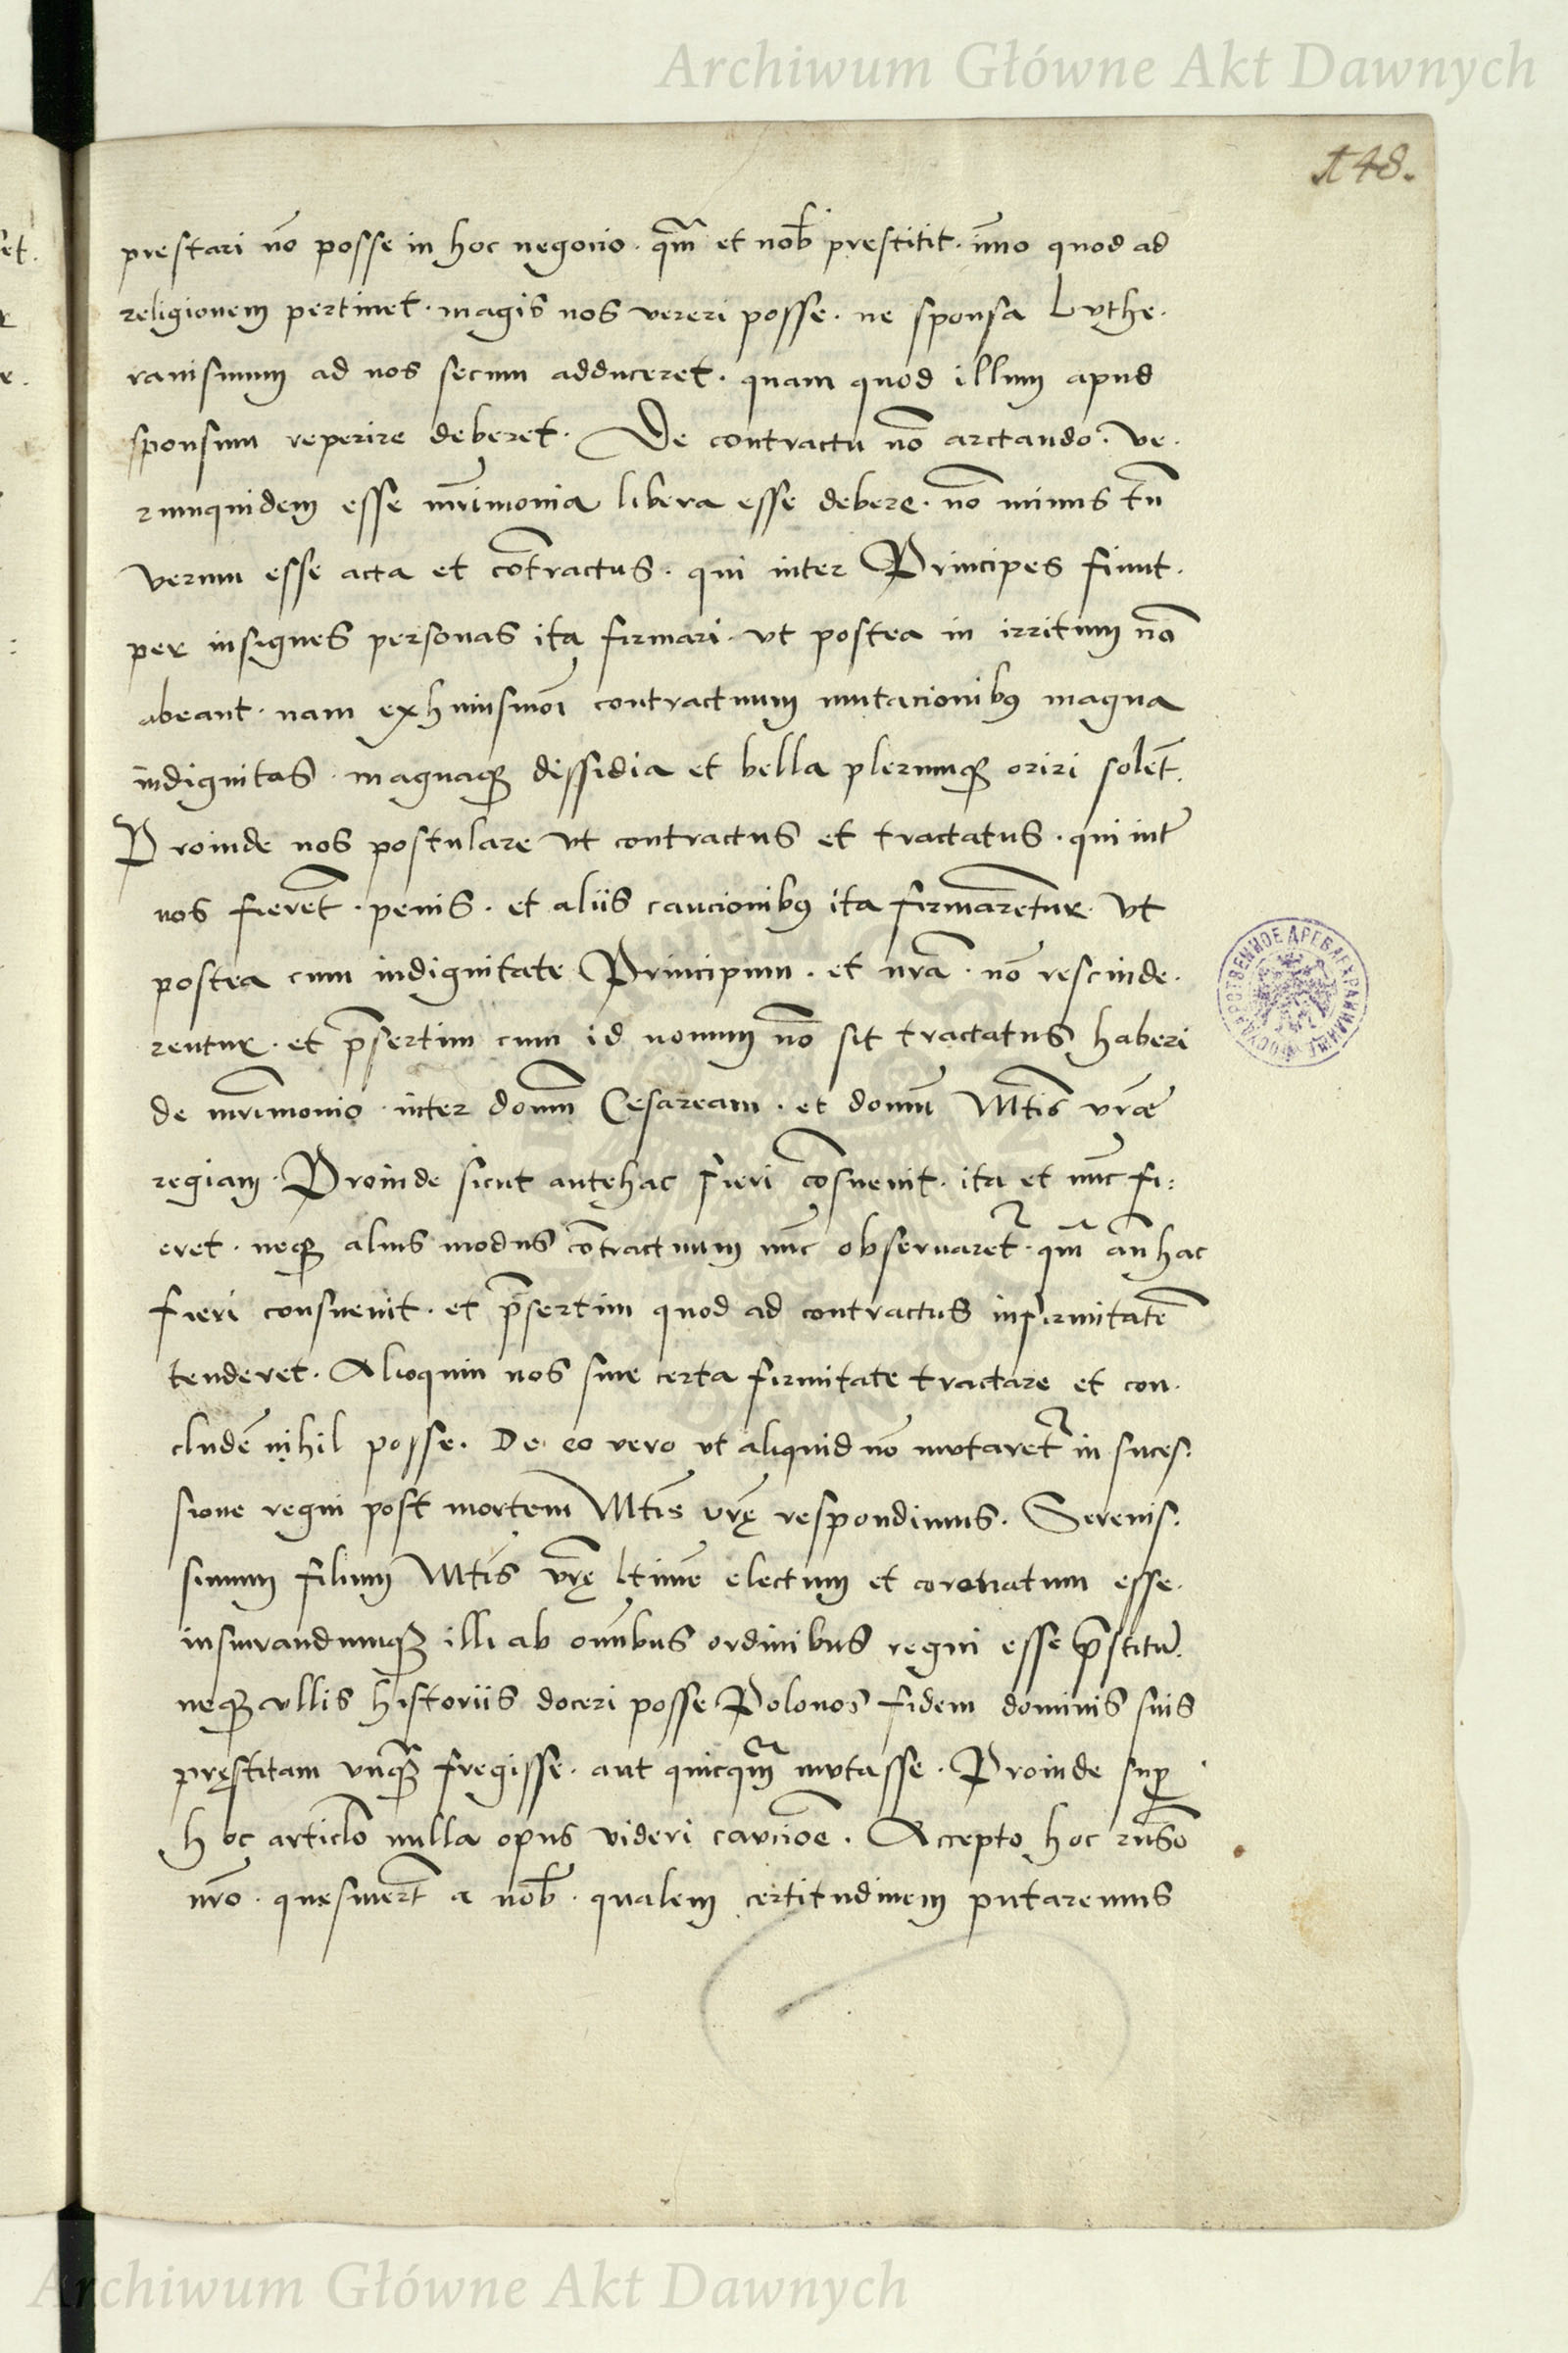 Archiwum Główne Akt Dawnych
148.
prestari nõ posse in hoc negocio. qm̃ et nob̃ prestitit. im̃o quod ad
religionem pertinet. magis nos vereri posse. ne sponsa Luthe.
ranismum ad nos secum adduceret. quam quod illum apud
sponsum reperire deberet. De contractu nõ arctando. Ve.
rumquidem esse mr̃imonia libera esse debere. nõ minus tñ
verum esse acta et cõtractus. qui inter Principes fiunt.
per insignes personas ita firmari. vt postea in irritum nõ
abeant. nam exhuiusmõi contractuum mutacionibꝰ magna
indignitas. magnaqꝫ dissidia et bella plerumqꝫ oriri solẽt.
Proinde nos postulare vt contractus et tractatus. qui int̃
nos fierẽt. penis. et aliis caucionibꝰ ita firmarẽtur. vt
postea cum indignitate Principum. et nr̃a. nõ rescinde.
rentur. et p̃sertim cum id nouum nõ sit tractatus haberi
de mr̃imonio inter domũ Cesaream. et domũ Mt̃is vr̃ae
regiam. Proinde sicut antehac fieri cõsueuit. ita et nũc fi:
eret. neqꝫ alius modus cõtractuum nũc obseruaret̃. qm̃ añhac
fieri consueuit. et p̃sertim quod ad contractus infirmitatẽ
tenderet. Alioquin nos sine certa firmitate tractare et con.
cludẽ nihil posse. De eo vero vt aliquid nõ mutaret̃ in suces.
sione regni post mortem Mt̃is vr̃ę respondimus. Serenis.
simum filium Mt̃is vr̃ę ltime electum et coronatum esse.
iusiurandumqꝫ illi ab om̃ibus ordinibus regni esse p̃stitũ.
neqꝫ vllis historiis doceri posse Polonos fidem dominis suis
pręstitam vnqꝫ̃ fregisse. aut quicqm̃ mutasse. Proinde sup
hoc articlo nulla opus videri caucioẽ. Accepto hoc rñso
nr̃o. quęsiuer̃t a nob̃. qualem certitudinem putaremus
Archiwum Główne Akt Dawnych